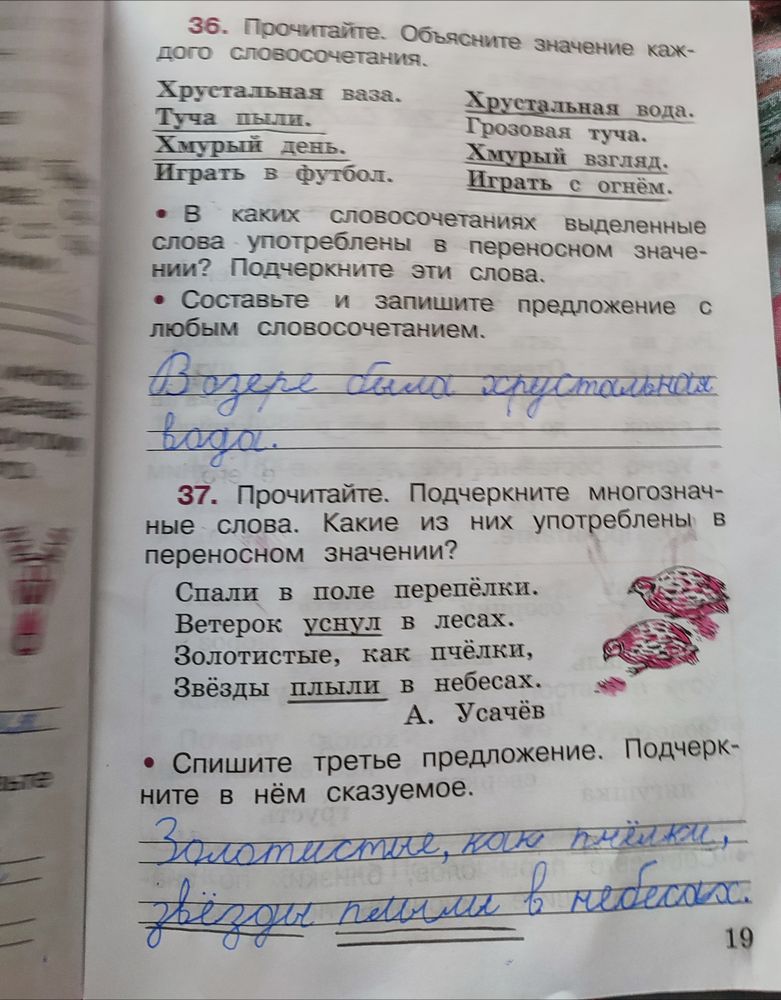 36. Прочитайте. Объясните значение каж-
дого словосочетания.
Хрустальная ваза. Хрустальная вода.
Туча пыли. Грозовая туча.
Хмурый день. Хмурый взгляд.
Играть в футбол. Играть с огнём.
• В каких словосочетаниях выделенные
слова употреблены в переносном значе-
нии? Подчеркните эти слова.
• Составьте и запишите предложение с
любым словосочетанием.
В озере была хрустальная
вода.
37. Прочитайте. Подчеркните многознач-
ные слова. Какие из них употреблены в
переносном значении?
Спали в поле перепёлки.
Ветерок уснул в лесах.
Золотистые, как пчёлки,
Звёзды плыли в небесах.
А. Усачёв
• Спишите третье предложение. Подчерк-
ните в нём сказуемое.
Золотистые, как пчёлки,
звёзды плыли в небесах.
19